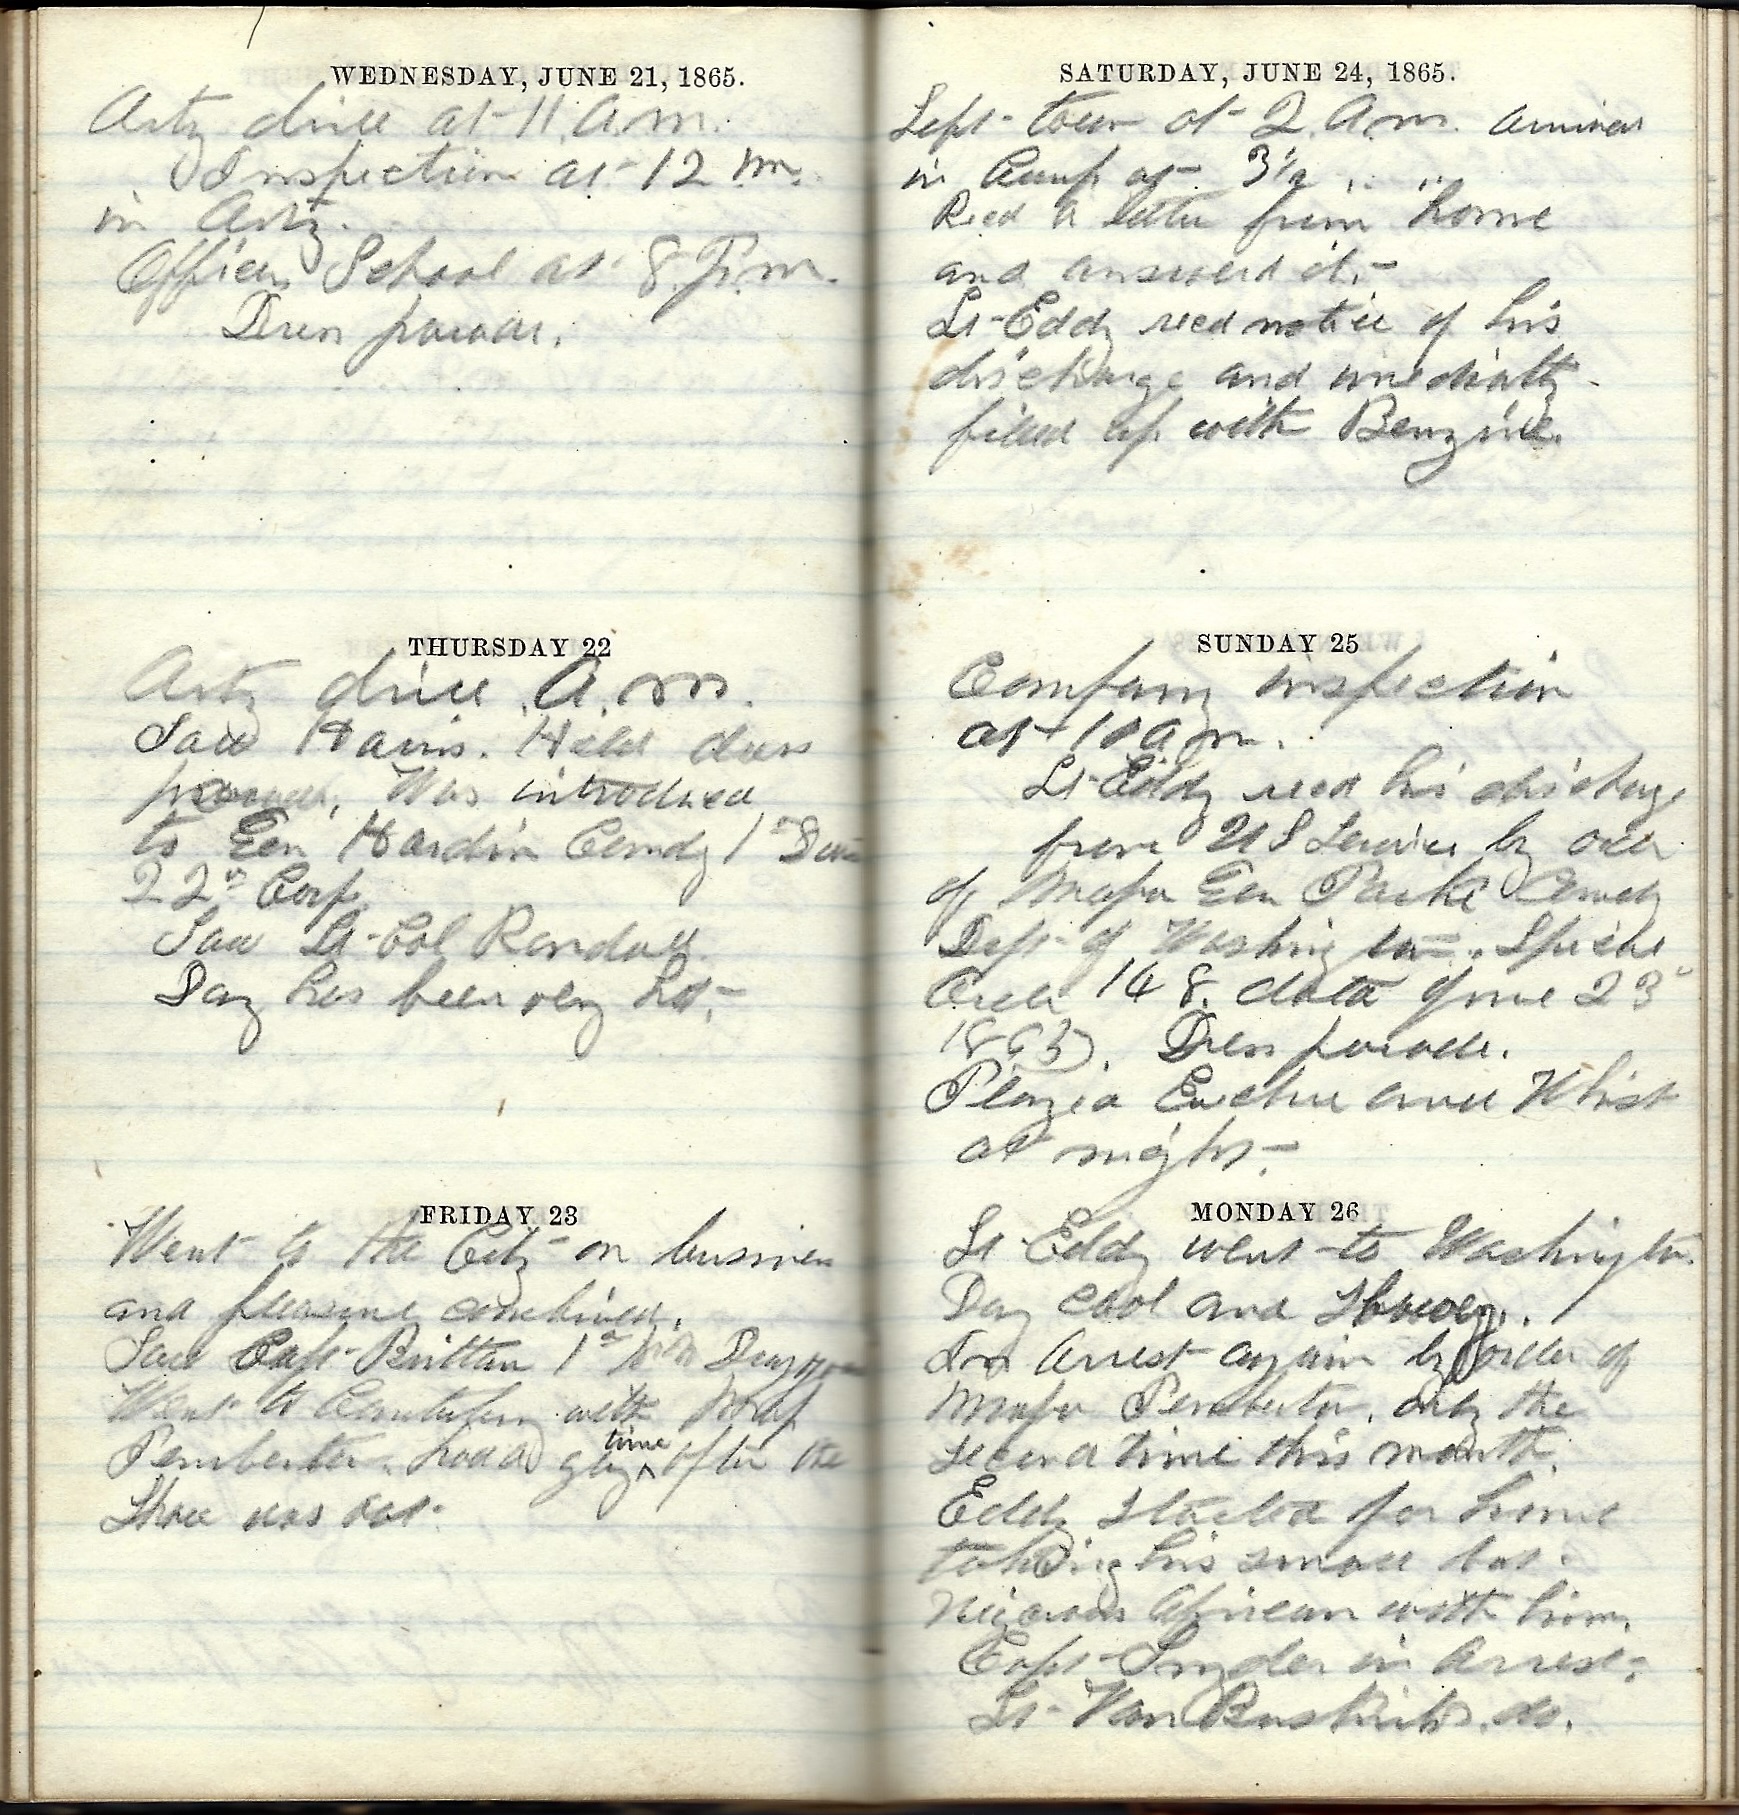 WEDNESDAY, JUNE 21, 1865.
Arty drill at 11 A.m.
Inspection at 12 m.
in Arty.
Officers School at 8 P.m.
Dress parade.
THURSDAY 22
Arty drill A.m.
Saw Harris. Held dress
parade. Was introduced
to Gen Hardin Comdg 1st Divn
22nd Corp
Saw Lt-Col Randall.
Day has been very hot.
FRIDAY 23
Went to the City on business
and pleasure combined.
Saw Capt Brittan 1st Dragoons
Went to Canterbury with Maj
Pemberton. had a gay time after the
Show was out.
SATURDAY, JUNE 24, 1865.
Left town at 2 A.m. arrived
in Camp at 3½ " "
Recd a letter from home
and answered it.
Lt Eddy recd notice of his
discharge and imediatly
filled up with Benzine.
SUNDAY 25
Company inspection
at 10 a.m.
Lt Eddy recd his discharge
from U S Service by order
of Major Gen Parke Comdg
Dept of Washington. Special
Order 148. dated June 23d
1865. Dress parade.
Played Euchre and Whist
at night.
MONDAY 26
Lt Eddy went to Washington.
Day cool and Showery.
In Arrest again by order of
Major Pemberton. only the
second time this month.
Eddy Started for home
taking his small but
African with him.
Capt Snyder in Arrest.
Lt Van Buskirk. do.